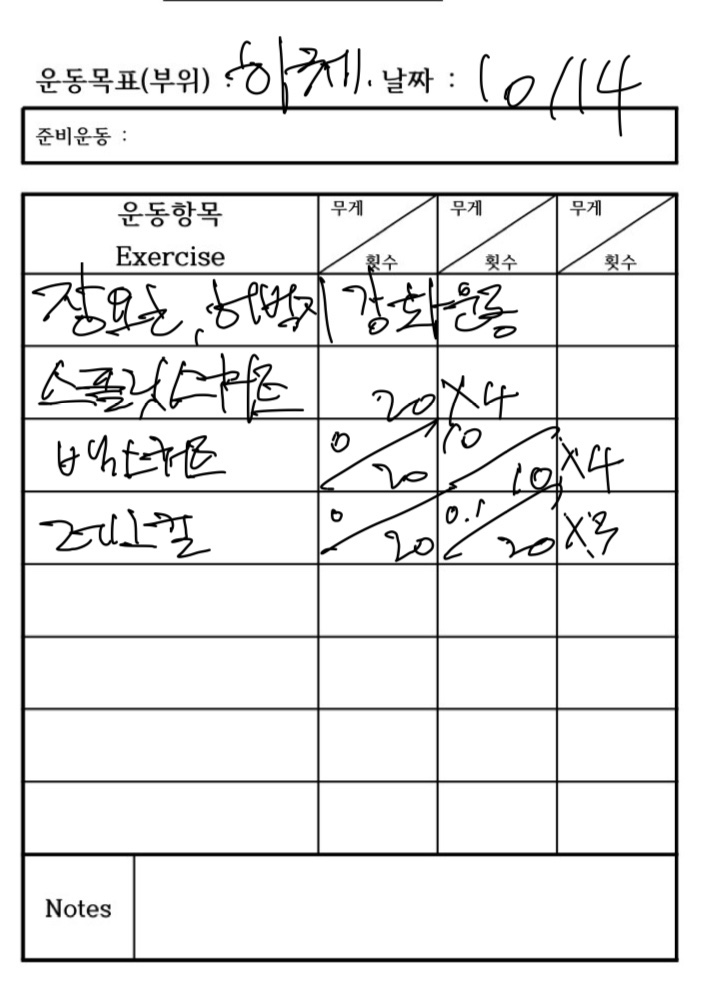 운동목표(부위) : 하체. 날짜 : 10/14
준비운동 :
운동항목 무게 무게 무게
Exercise 횟수 횟수 횟수
장요근, 허벅지 강화 운동
스플릿스쿼트 20 X4
백스쿼트 0 20 10 10 X4
레그컬 0 20 0.1 20 X3
Notes